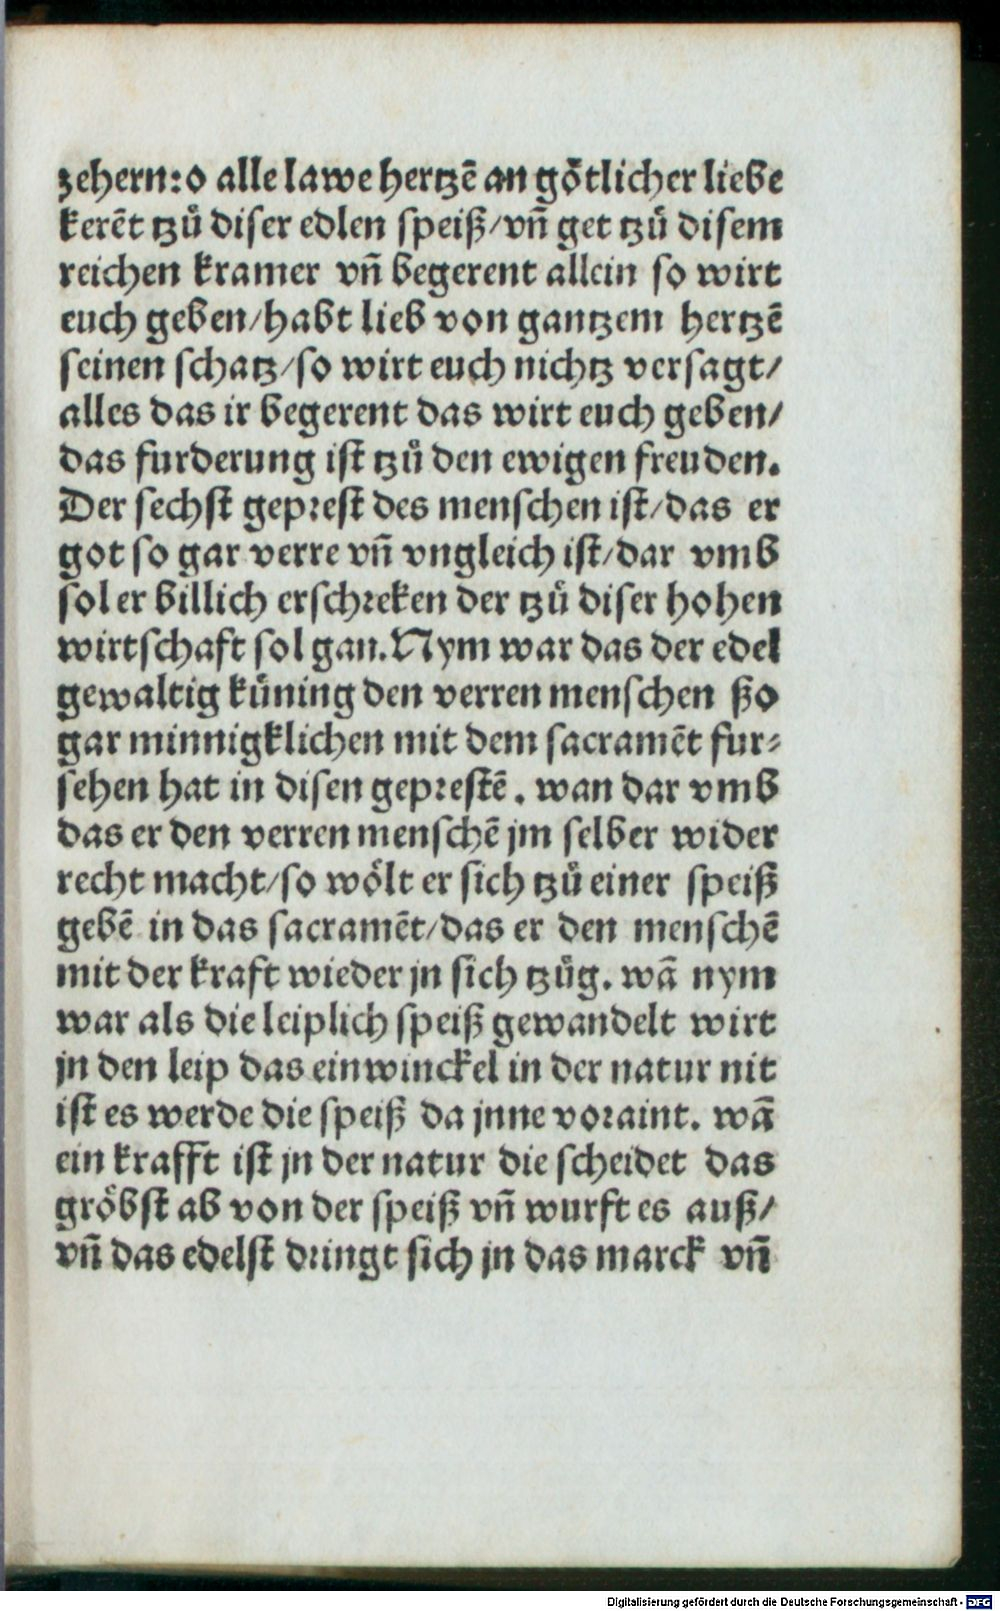 zehern: o alle lawe hertzē an götlicher liebe
kerēt tzů diser edlen speiß/vn̄ get tzů disem
reichen kramer vn̄ begerent allein so wirt
euch geben/habt lieb von gantzem hertzē
seinen schatz/so wirt euch nichtz versagt/
alles das ir begerent das wirt euch geben/
das furderung ist tzů den ewigen freuden.
Der sechst geprest des menschen ist/das er
got so gar verre vn̄ vngleich ist/dar vmb
sol er billich erschreken der tzů diser hohen
wirtschaft sol gan. Nym war das der edel
gewaltig küning den verren menschen ßo
gar minnigklichen mit dem sacramēt fur⸗
sehen hat in disen geprestē. wan dar vmb
das er den verren menschē jm selber wider
recht macht/so wölt er sich tzů einer speiß
gebē in das sacramēt/das er den menschē
mit der kraft wieder jn sich tzüg. wā nym
war als die leiplich speiß gewandelt wirt
jn den leip das ein winckel in der natur nit
ist es werde die speiß da jnne voraint. wā
ein krafft ist jn der natur die scheidet das
gröbst ab von der speiß vn̄ wurft es auß/
vn̄ das edelst dringt sich jn das marck vn̄
Digitalisierung gefördert durch die Deutsche Forschungsgemeinschaft - DFG